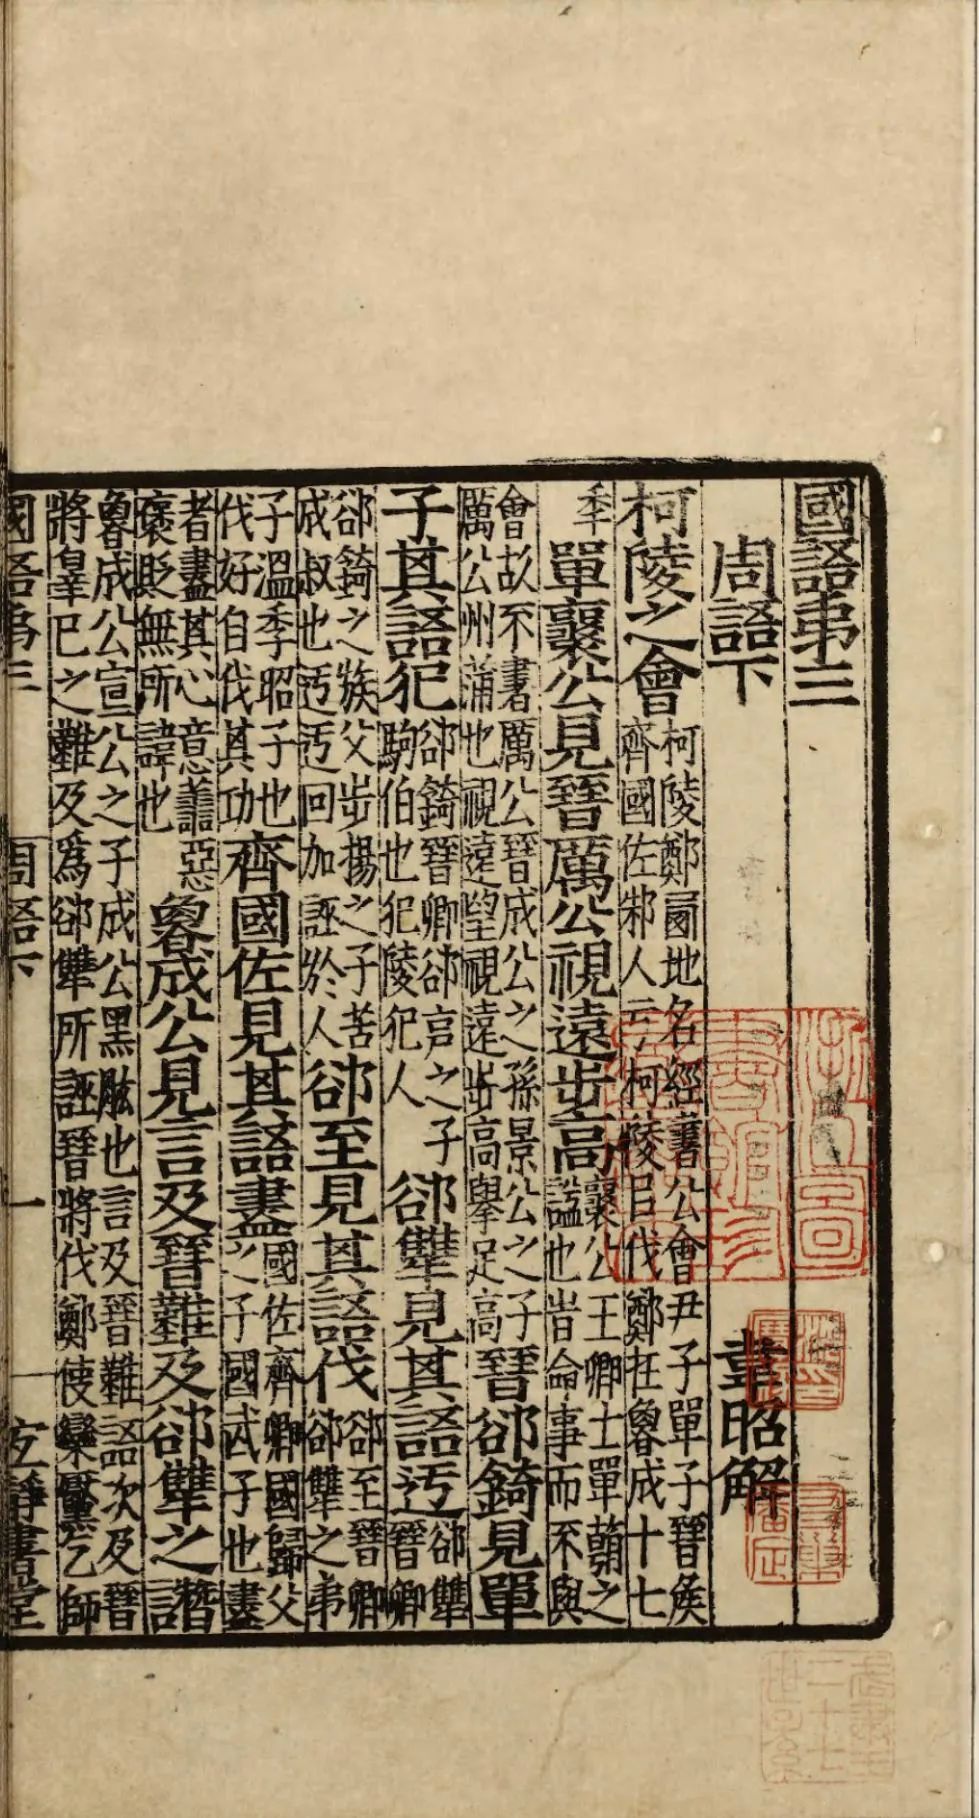 國語弟三
周語下 韋昭解
柯陵之會
柯陵鄭西地名經書公會尹子單子晉侯
齊國佐邾人云柯陵㠯伐鄭在魯成十七
年
單襄公見晉厲公視遠步高
襄公王卿士單朝之
謚也皆命事而不與
會故不書厲公晉成公之孫景公之子
厲公州蒲也視遠望視遠步高舉足高
晉郤錡見單
子其語犯
郤錡晉卿郤克之子
駒伯也犯陵犯人
郤犨見其語迂
郤犨
晉卿
郤錡之族父步揚之子苦
成叔也迂迂回加誣於人
郤至見其語伐
郤至晉卿
郤犨之弟
子溫季昭子也
伐好自伐其功
齊國佐見其語盡
國佐齊卿國歸父
之子國武子也盡
者盡其心意善惡
褒貶無所諱也
魯成公見言及晉難及郤犨之譖
魯成公宣公之子成公黑肱也言及晉難語次及晉
將辠已之難及爲郤犨所誣晉將伐鄭使欒黶乞師
國語弟三 周語下 一 靜書堂
浙江圖
書館珍